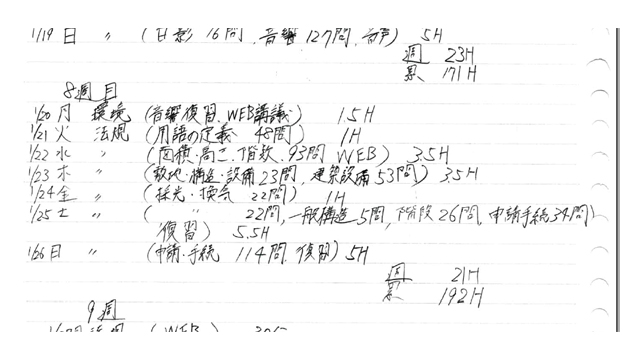 1/19 日 〃 (日影 16問、音響 127問、音声) 5H
週 23H
累 171H
8週目
1/20 月 環境 (音響復習、WEB講議) 1.5H
1/21 火 法規 (用語の定義 48問) 1H
1/22 水 〃 (面積・高さ・階数、93問 WEB) 3.5H
1/23 木 〃 (敷地・構造・設備23問、建築設備53問) 3.5H
1/24 金 〃 (採光・換気 22問) 1H
1/25 土 〃 ( 〃 22問、一般構造5問、階段26問、申請手続34問)
復習) 5.5H
1/26 日 〃 (申請・手続 114問、復習) 5H
週 21H
累 192H
9週
法規 (WEB)